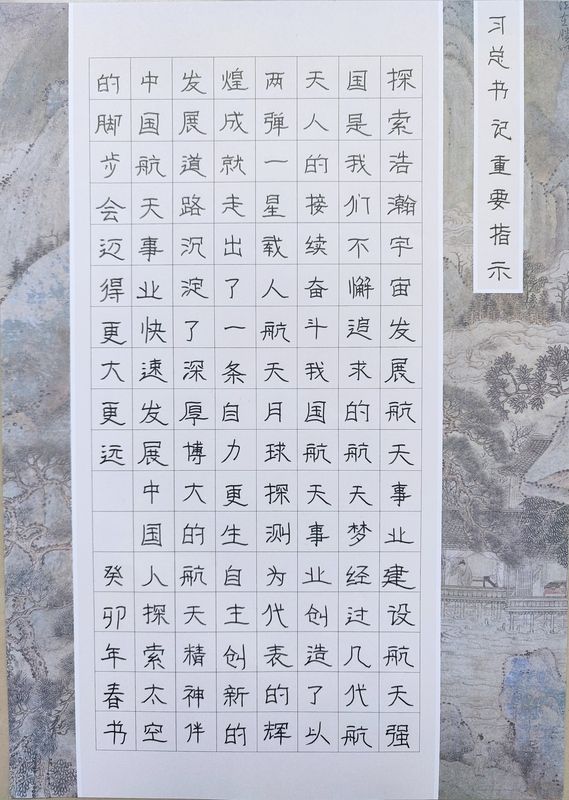 习总书记重要指示
探索浩瀚宇宙发展航天事业建设航天强
国是我们不懈追求的航天梦经过几代航
天人的接续奋斗我国航天事业创造了以
两弹一星载人航天月球探测为代表的辉
煌成就走出了一条自力更生自主创新的
发展道路沉淀了深厚博大的航天精神伴
中国航天事业快速发展中国人探索太空
的脚步会迈得更大更远
癸卯年春书